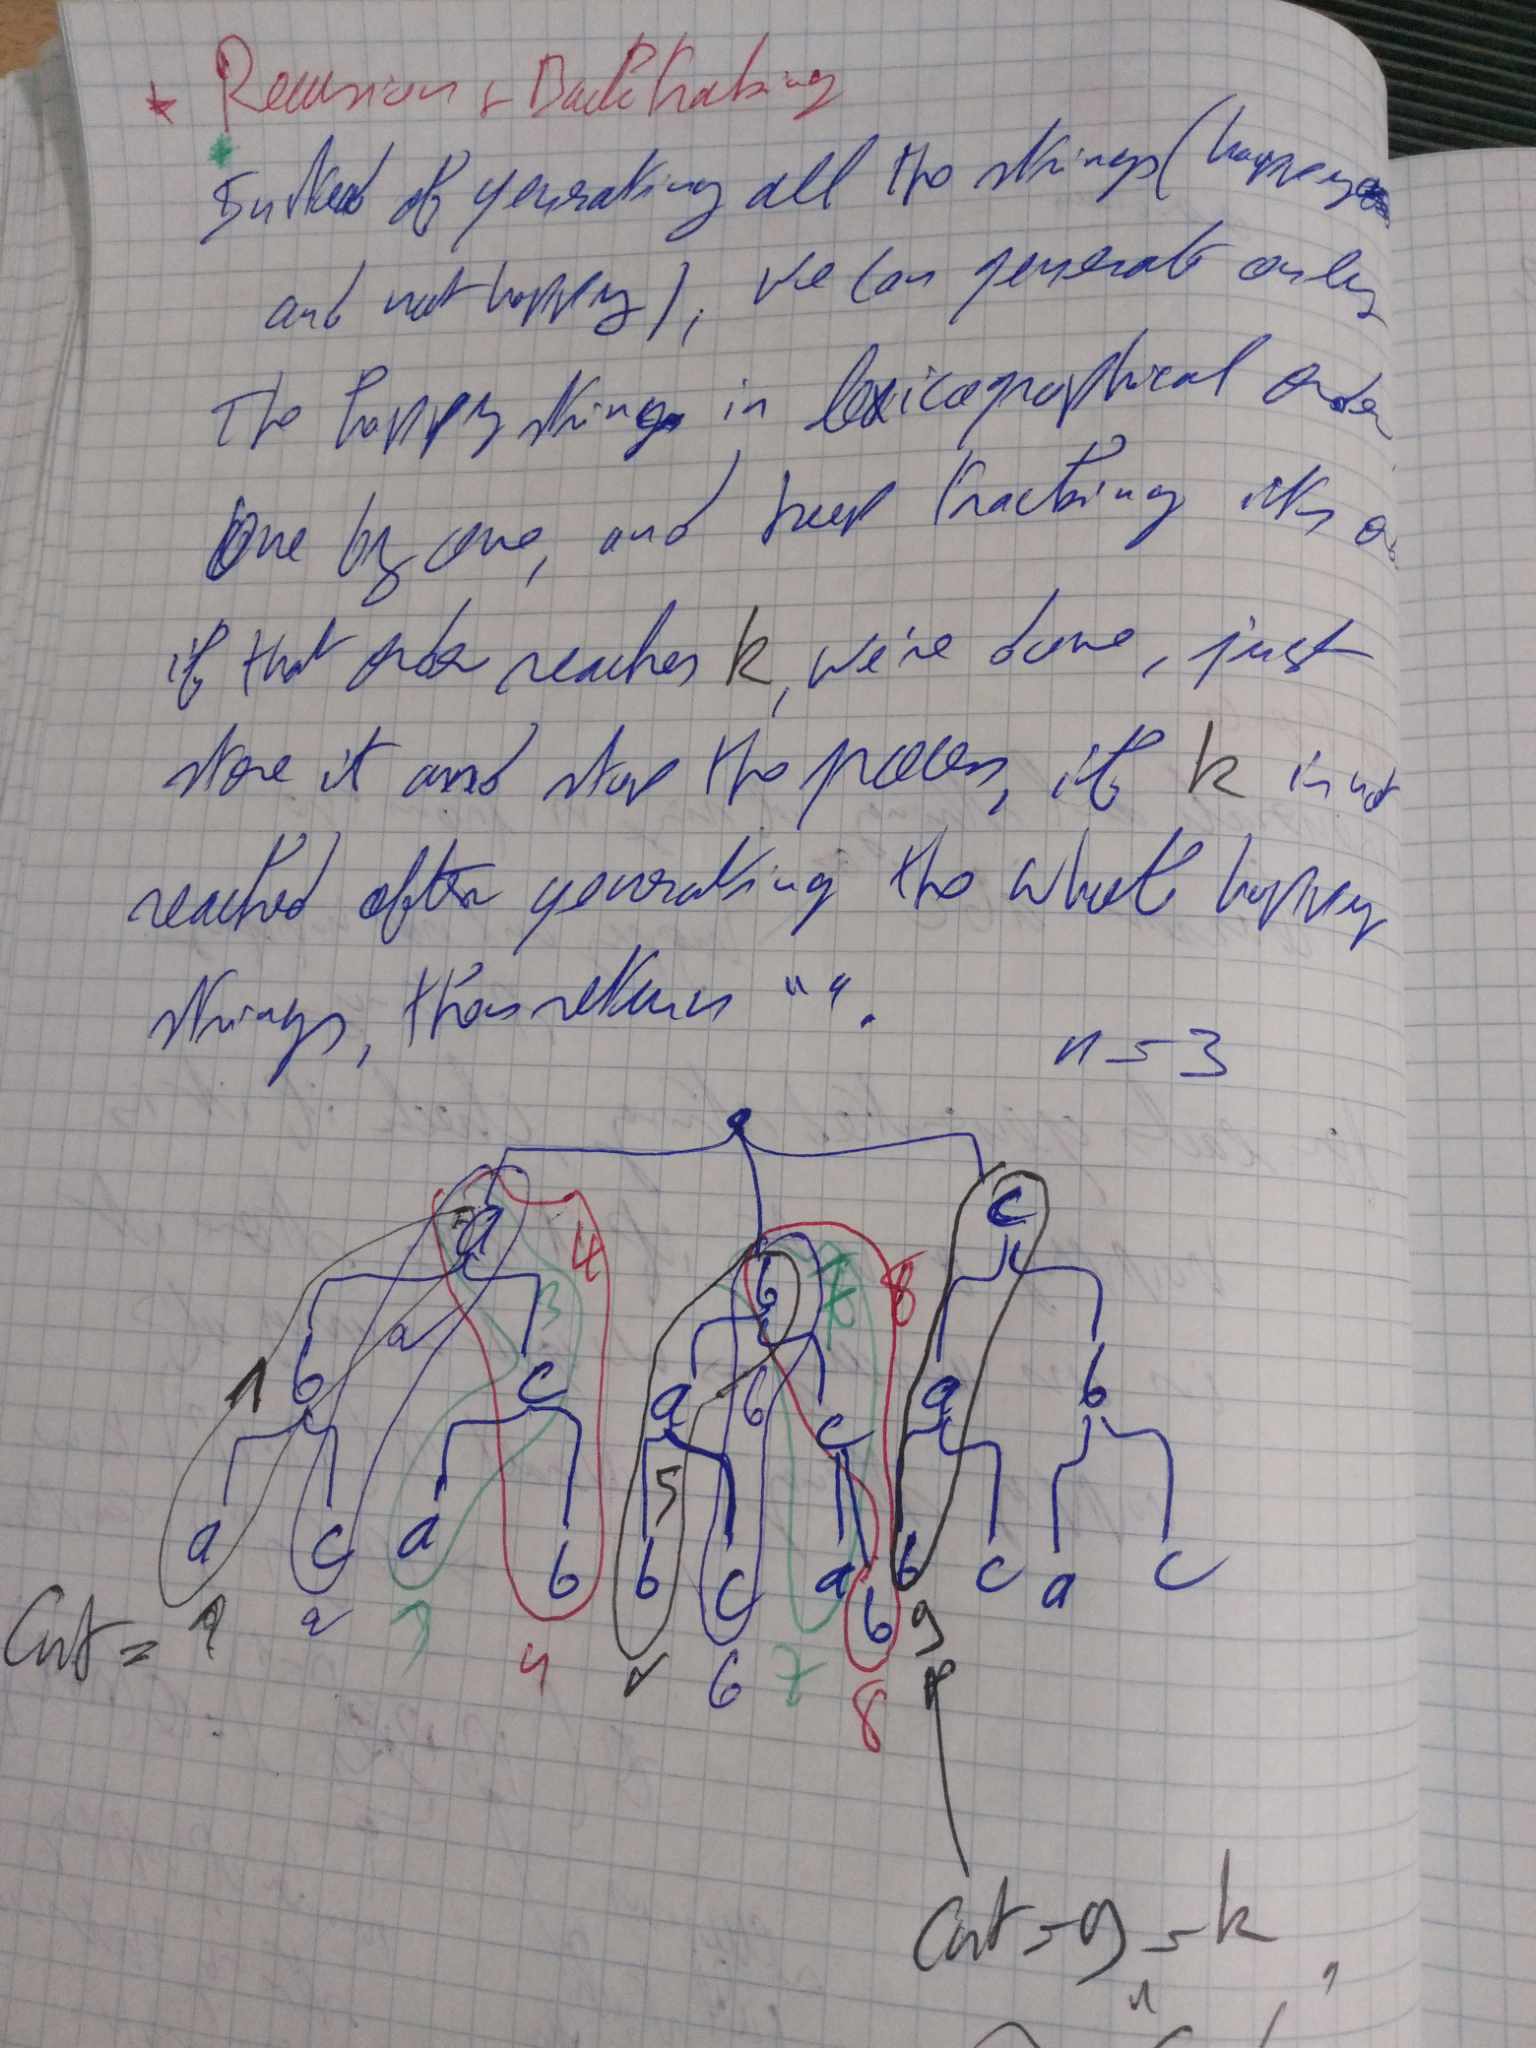 * Recursion & Backtracking
* Instead of generating all the strings (happy
and not happy), we can generate only
the happy strings in lexicographical order
One by one, and keep tracking its
if that order reaches k, we're done, just
store it and stop the process, if k is not
reached after generating the whole happy
strings, then return "".
n = 3
a c
4
3 b 7 8
2
1 b c a b c a b
5
a c a b b c a b b c a c
Cnt = 1 2 3 4 5 6 7 8 9
Cnt = 9 = k